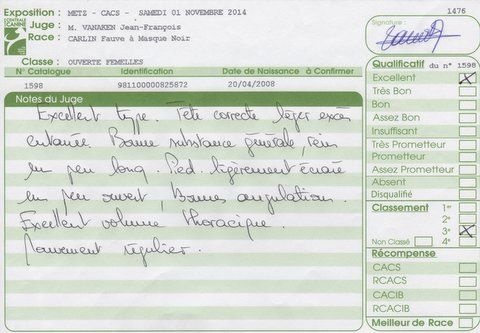 Exposition : METZ - CACS - SAMEDI 01 NOVEMBRE 2014
1476
CENTRALE CANINE
Juge : M. VANAKEN Jean-François
Race : CARLIN Fauve à Masque Noir
Signature :
Classe : OUVERTE FEMELLES
N° Catalogue Identification Date de Naissance à Confirmer
1598 981100000825872 20/04/2008
Notes du Juge
Excellent type. Tête correcte léger excès
Bonne substance générale, rein
un peu long. Pied légèrement écrasé
un peu ouvert, Bonnes angulations.
Excellent volume thoracique.
Mouvement régulier.
Qualificatif du n° 1598
Excellent X
Très Bon
Bon
Assez Bon
Insuffisant
Très Prometteur
Prometteur
Assez Prometteur
Absent
Disqualifié
Classement 1er
2e
3e X
Non Classé 4e
Récompense
CACS
RCACS
CACIB
RCACIB
Meilleur de Race